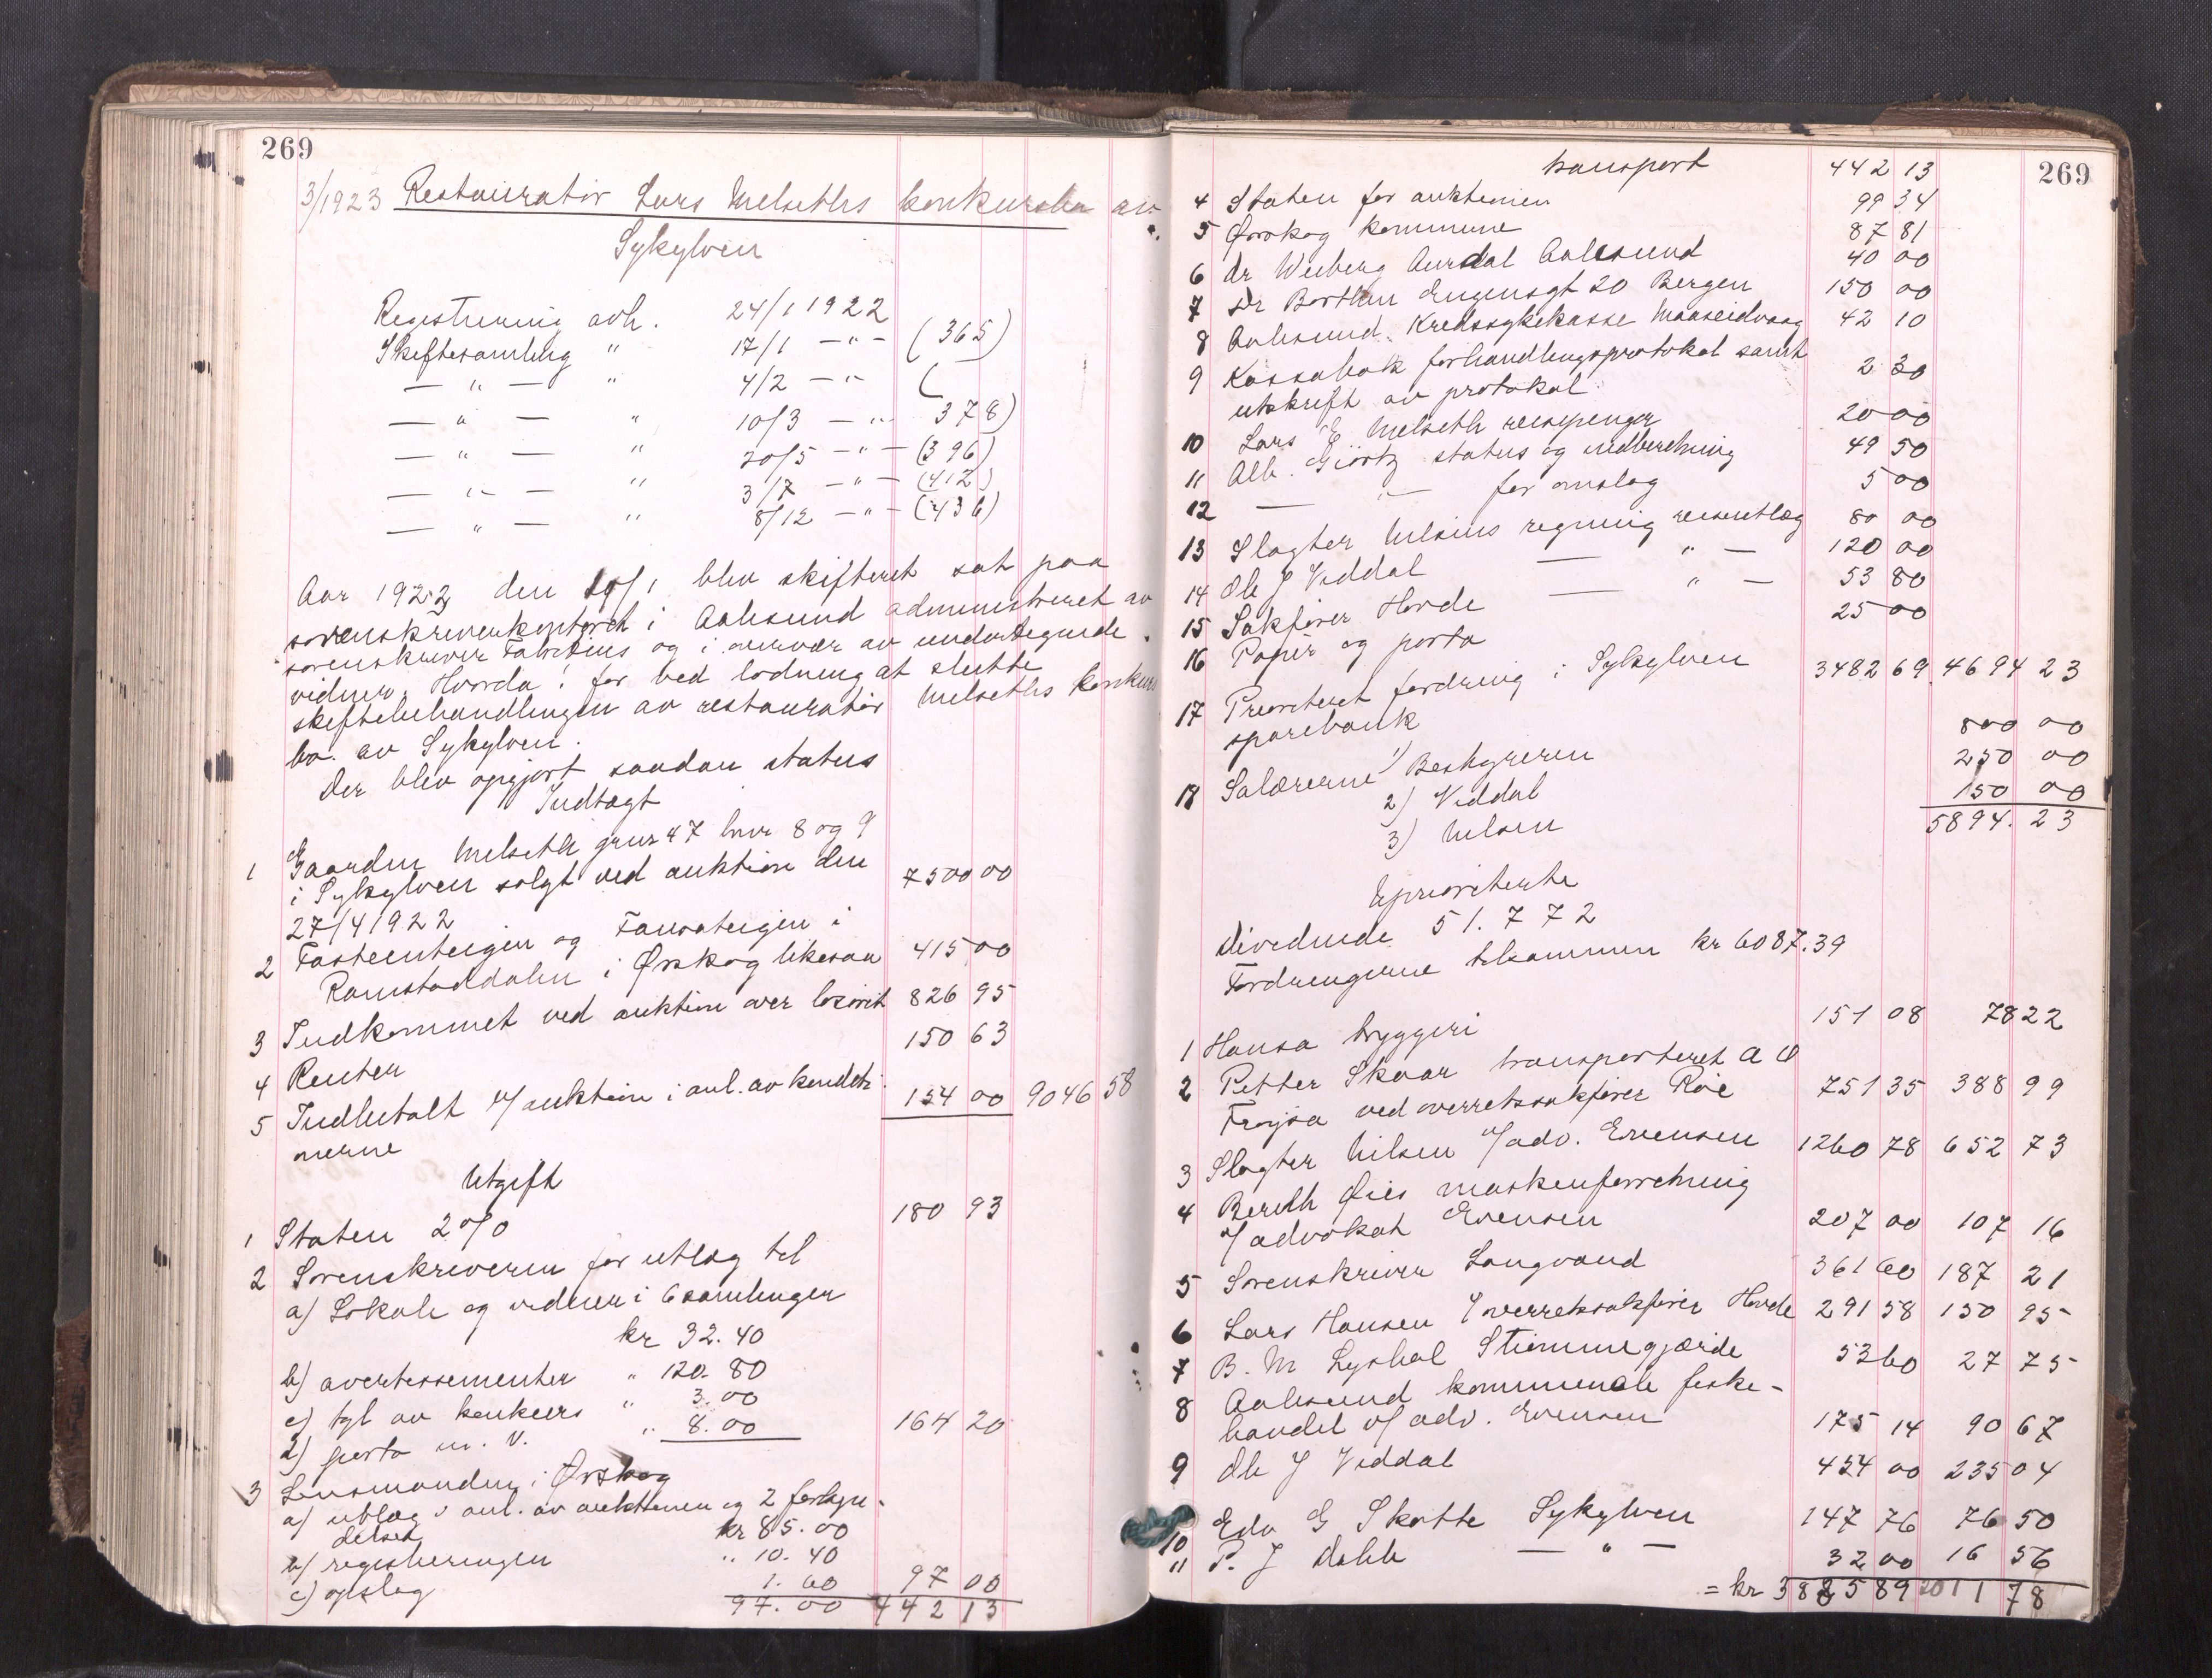 269
3/1923 Restauratør Lars Melseths konkursbo av
Sykylven
Registrering avh. 24/1 1922
Skiftesamling " 17/1 -"- (365)
— " — " 4/2 -"- (
— " — " 10/3 -"- 378)
— " — " 20/5 -"- (396)
— " — " 3/7 -"- (412)
— " — " 8/12 -"- (436)
Aar 1923 den 20/1 blev skifteret sat paa
sorenskriverkontoret i Aalesund administreret av
sorenskriver Fabritius og i overvær av undertegnede
vidner. Hvorda: for ved lodning at slutte
skiftebehandlingen av restauratør Melseths konkurs
bo. av Sykylven.
Der blev opgjort saadan status
Indtægt
1 Gaarden Melseth grnr 47 brnr 8 og 9
i Sykylven solgt ved auktion den
27/4 1922 7500 00
2 Fasteenteigen og Fauskteigen i
Ramstaddalen i Ørskog likesaa 415 00
3 Indkommet ved auktion over løsøret 826 95
4 Renter 150 63
5 Indbetalt v/ auktion i anl. av kondeti-
onerne 154 00 9046 58
Utgift
1 Staten 2 % 180 93
2 Sorenskriveren for utlæg til
a) Lokale og vidner i 6 samlinger
kr 32.40
b) avertissementer " 120.80
c) tgl av konkurs " 3.00
d) porto m. v. " 8.00 164 20
3 Lensmanden i Ørskog
a) utlæg i anl. av auktionen og 2 forkyn-
delser kr 85.00
b) registreringen " 10.40
c) opslag 1.60 97 00
97.00 442 13
269
transport 442 13
4 Staten for auktionen 99 34
5 Ørskog kommune 87 81
6 dr Weiberg Aurdal Aalesund 40 00
7 Dr Borthen Engensgt 20 Bergen 150 00
8 Aalesund Kredssykekasse Maaseidvaag 42 10
9 Kassabok forhandlingsprotokol samt
utskrift av protokol 2 30
10 Lars E Melseth reisepenger 20 00
11 Alb. Giørtz status og indberetning 49 50
12 — " — for omslag 5 00
13 Slagter Nilsens regning reiseutlæg 80 00
14 Ole J Viddal — " — 120 00
15 Sakfører Hovde — " — 53 80
16 Papir og porto 25 00
17 Prioritert fordring i Sykylven
sparebank 3482 69 4694 23
18 Salærerne 1) Bestyreren 800 00
2) Viddal 250 00
3) Nilsen 150 00
5894. 23
Uprioriterte
Dividende 51.772
Fordringerne tilsammen kr 6087.39
1 Hansa bryggeri 151 08 78 22
2 Petter Skaar transporteret A O
Frøysa ved overretssakfører Røe 751 35 388 99
3 Slagter Nilsen v/ adv. Evensen 1260 78 652 73
4 Bereth Øies maskinforretning
v/ advokat Evensen 207 00 107 16
5 Sorenskriver Langvand 361 60 187 21
6 Lars Hansen v/ overretssakfører Hovde 291 58 150 95
7 B. M Lyshol Strømmegjærde 53 60 27 75
8 Aalesund kommunale fiske-
handel v/ adv. Evensen 175 14 90 67
9 Ole J Viddal 454 00 235 04
10 Edv G Skotte Sykylven 147 76 76 50
11 P. J Dahle — " — 32 00 16 56
= kr 3885 89 2011 78